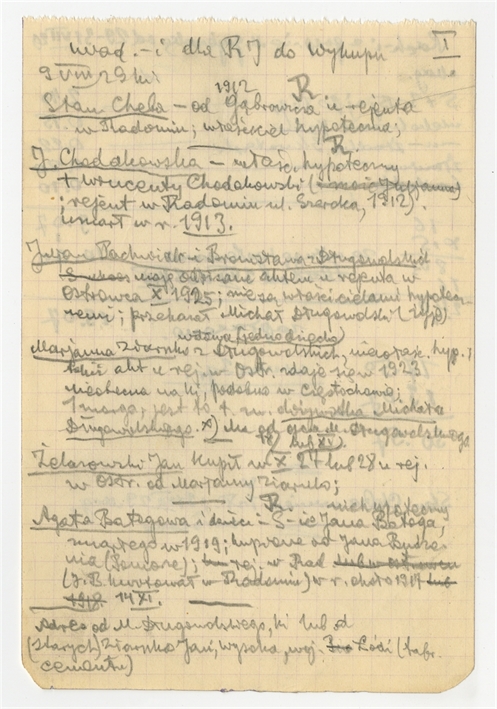 wiad.-i dla RJ do wykupu I
9 VIII 29 Ki
1912 R
Stan. Chała – od Gąbrowicza u rejenta
w Radomiu; właściciel hypoteczny;
R.
J. Chodakowska – właśc. hypoteczny
+ Wincenty Chodakowski
; rejent w Radomiu ul. Szeroka, 1912).
umarł w r. 1913.
Juljan Pachniak i Bronisława z Długowolskich
mają odpisane aktem u rejenta w
Ostrowcu X 1925; nie są właścicielami hypotecz
nemi; przekazał Michał Długowolski (hyp.)
wdowa (jedno dziecko)
Marjanna Ziarnko z Długowolskich, hyp.;
akt u rej. w Ostr. zdaje się w 1923
nieobecna na Ki, podobno w Częstochowie;
1 morga, jest to t. zw. dożywotka Michała
Długowolskiego. x) Ma od ojca M. Długowolskiego
lub XI).
Żelazowski Jan kupił w X 27 lub 28 u rej.
w Ostr. od Marjanny Ziarnko;
R. niehypoteczny
Agata Batogowa i dzieci – S-ie Jana Batoga,
zmarłego w 1919; kupione od Jana
nia (Pomorze); rej. w Rad. lub w Ostrowcu
(J. B. kwaterował w Radomiu) w r. około 1917 lub
1918 14 XI.
Adres od M. Długowolskiego, Ki lub od
(starych) Ziarnko Jan, Wysoka, woj. Łódź (fabr.
cementu)